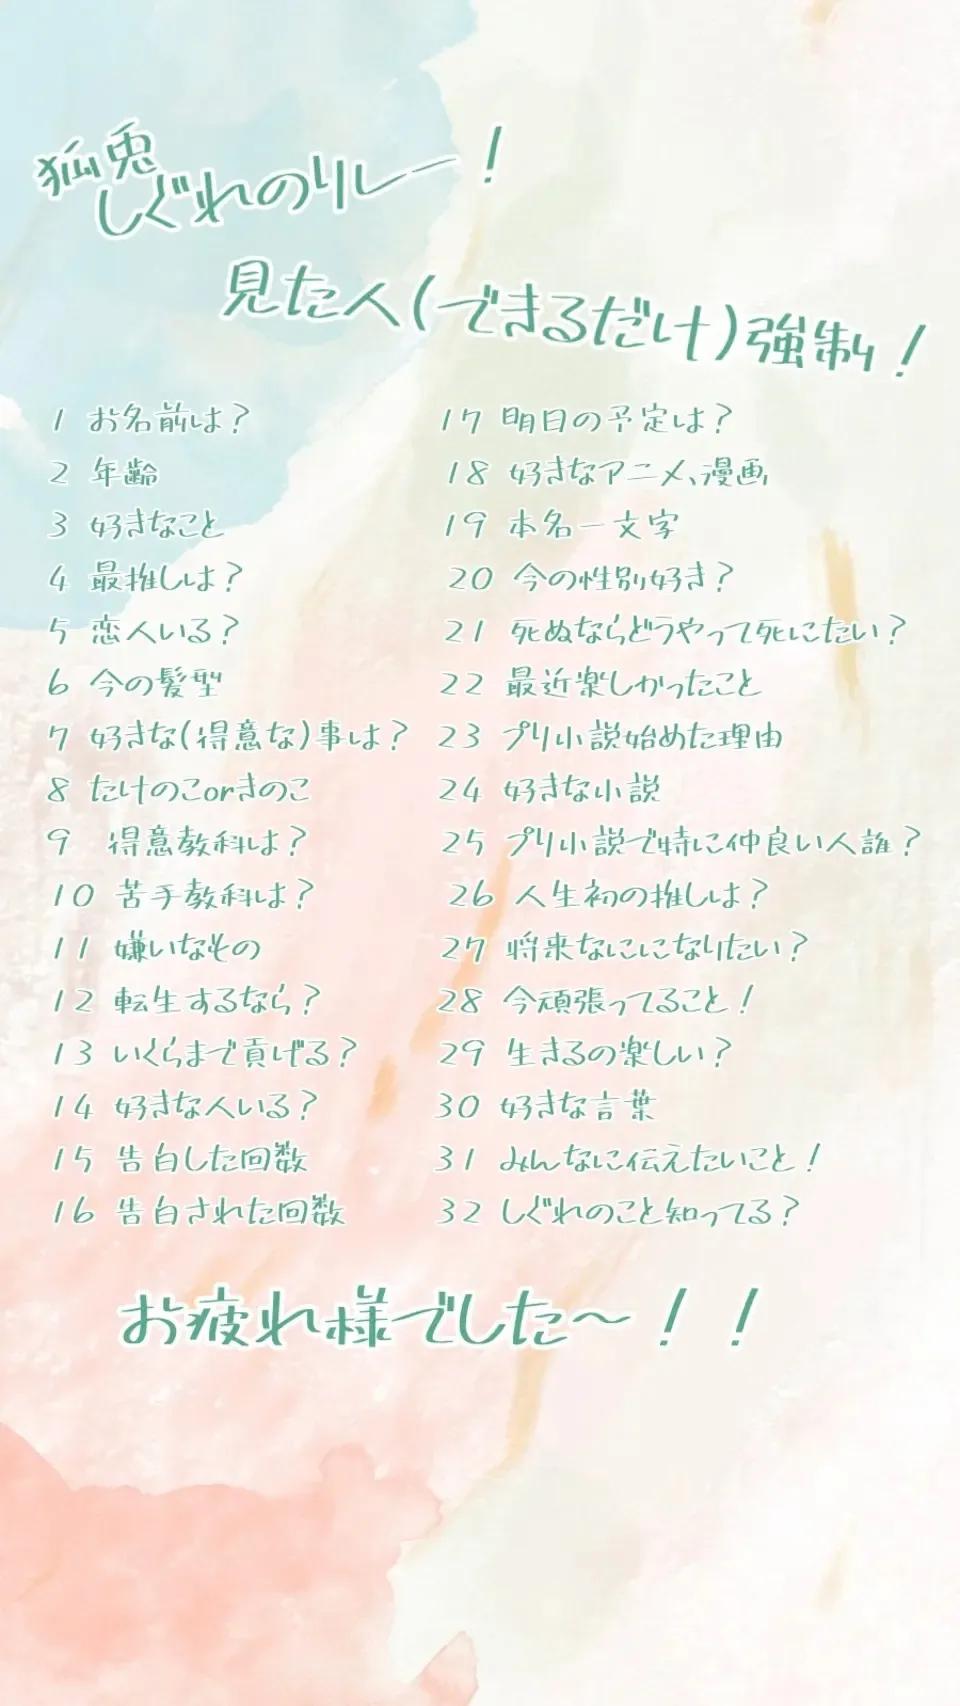 狐兎
しぐれのリレー！
見た人(できるだけ)強制！
1 お名前は？
2 年齢
3 好きなこと
4 最推しは？
5 恋人いる？
6 今の髪型
7 好きな(得意な)事は？
8 たけのこorきのこ
9 得意教科は？
10 苦手教科は？
11 嫌いなもの
12 転生するなら？
13 いくらまで貢げる？
14 好きな人いる？
15 告白した回数
16 告白された回数
17 明日の予定は？
18 好きなアニメ、漫画
19 本名一文字
20 今の性別好き？
21 死ぬならどうやって死にたい？
22 最近楽しかったこと
23 プリ小説始めた理由
24 好きな小説
25 プリ小説で特に仲良い人誰？
26 人生初の推しは？
27 将来なにになりたい？
28 今頑張ってること！
29 生きるの楽しい？
30 好きな言葉
31 みんなに伝えたいこと！
32 しぐれのこと知ってる？
お疲れ様でした〜！！